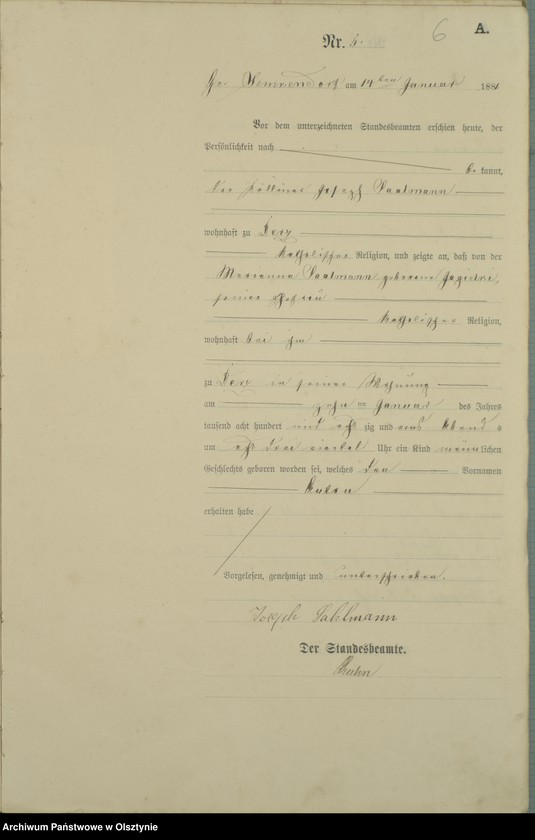 6 A.
Nr. 6.
am 14ten Januar 1881
Vor dem unterzeichneten Standesbeamten erschien heute, der
Persönlichkeit nach
be kannt,
der Joseph Saalmann
wohnhaft zu Derz
katholischer Religion, und zeigte an, daß von der
Marianna Saalmann geborene
seiner Ehefrau
katholischer Religion,
wohnhaft bei ihm
zu Derz in seiner Wohnung
am zehnten Januar des Jahres
tausend acht hundert und acht zig und eins Abends
um acht drei viertel Uhr ein Kind männlichen
Geschlechts geboren worden sei, welches den Vornamen
erhalten habe
Vorgelesen, genehmigt und unterschrieben.
Joseph Sahlmann
Der Standesbeamte.
Archiwum Państwowe w Olsztynie